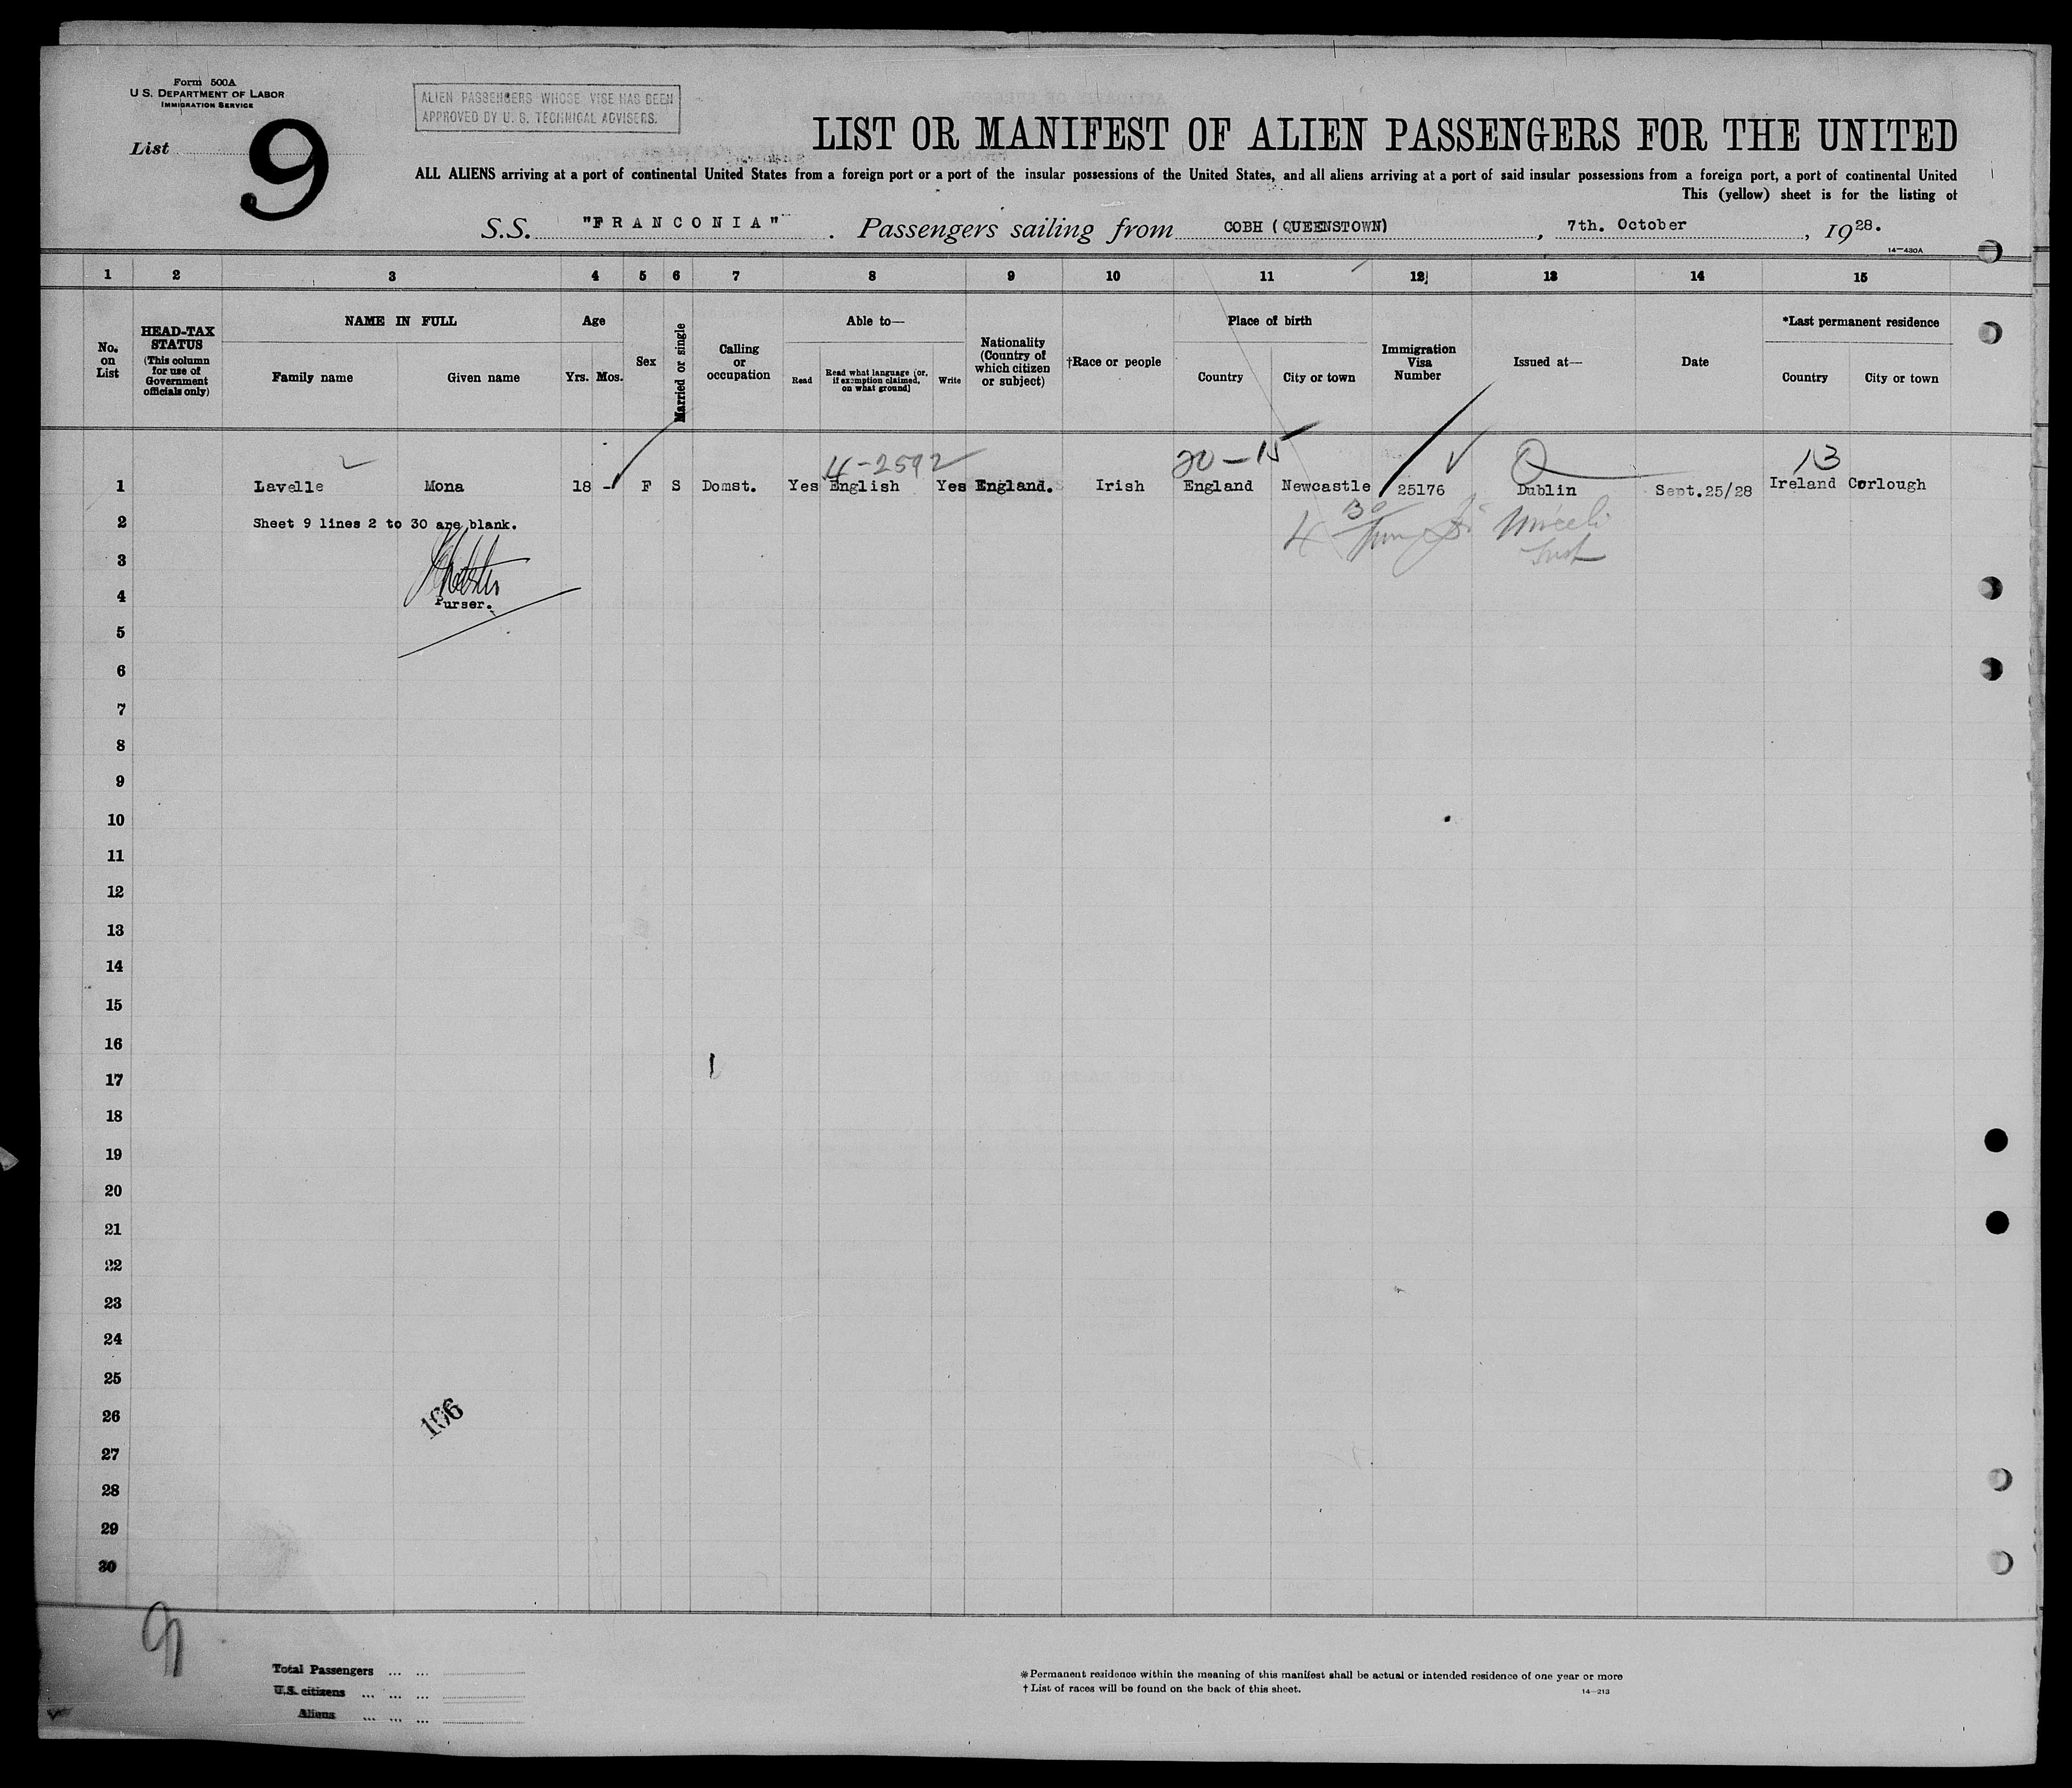 Form 500A
U. S. DEPARTMENT OF LABOR
IMMIGRATION SERVICE
ALIEN PASSENGERS WHOSE VISE HAS BEEN
APPROVED BY U. S. TECHNICAL ADVISERS.
List 9
LIST OR MANIFEST OF ALIEN PASSENGERS FOR THE UNITED
ALL ALIENS arriving at a port of continental United States from a foreign port or a port of the insular possessions of the United States, and all aliens arriving at a port of said insular possessions from a foreign port, a port of continental United
This (yellow) sheet is for the listing of
S.S. "FRANCONIA" . Passengers sailing from COBH (QUEENSTOWN) , 7th. October , 1928.
14—430A
1 2 3 4 5 6 7 8 9 10 11 12 13 14 15
No. on List
HEAD-TAX STATUS (This column for use of Government officials only)
NAME IN FULL
Family name Given name
Age
Yrs. Mos.
Sex
Married or single
Calling or occupation
Able to—
Read
Read what language [or, if exemption claimed, on what ground]
Write
Nationality (Country of which citizen or subject)
†Race or people
Place of birth
Country City or town
Immigration Visa Number
Issued at—
Date
*Last permanent residence
Country City or town
4-2592 20-15 13
1 Lavelle Mona 18 - F S Domst. Yes English Yes England. Irish England Newcastle 25176 Dublin Sept.25/28 Ireland Corlough
2 Sheet 9 lines 2 to 30 are blank.
3
4 Purser.
5
6
7
8
9
10
11
12
13
14
15
16
17
18
19
20
21
22
23
24
25
26
27
28
29
30
9
Total Passengers ... ...
U.S. citizens ... ... ...
Aliens ... ... ...
*Permanent residence within the meaning of this manifest shall be actual or intended residence of one year or more
† List of races will be found on the back of this sheet.
14—213